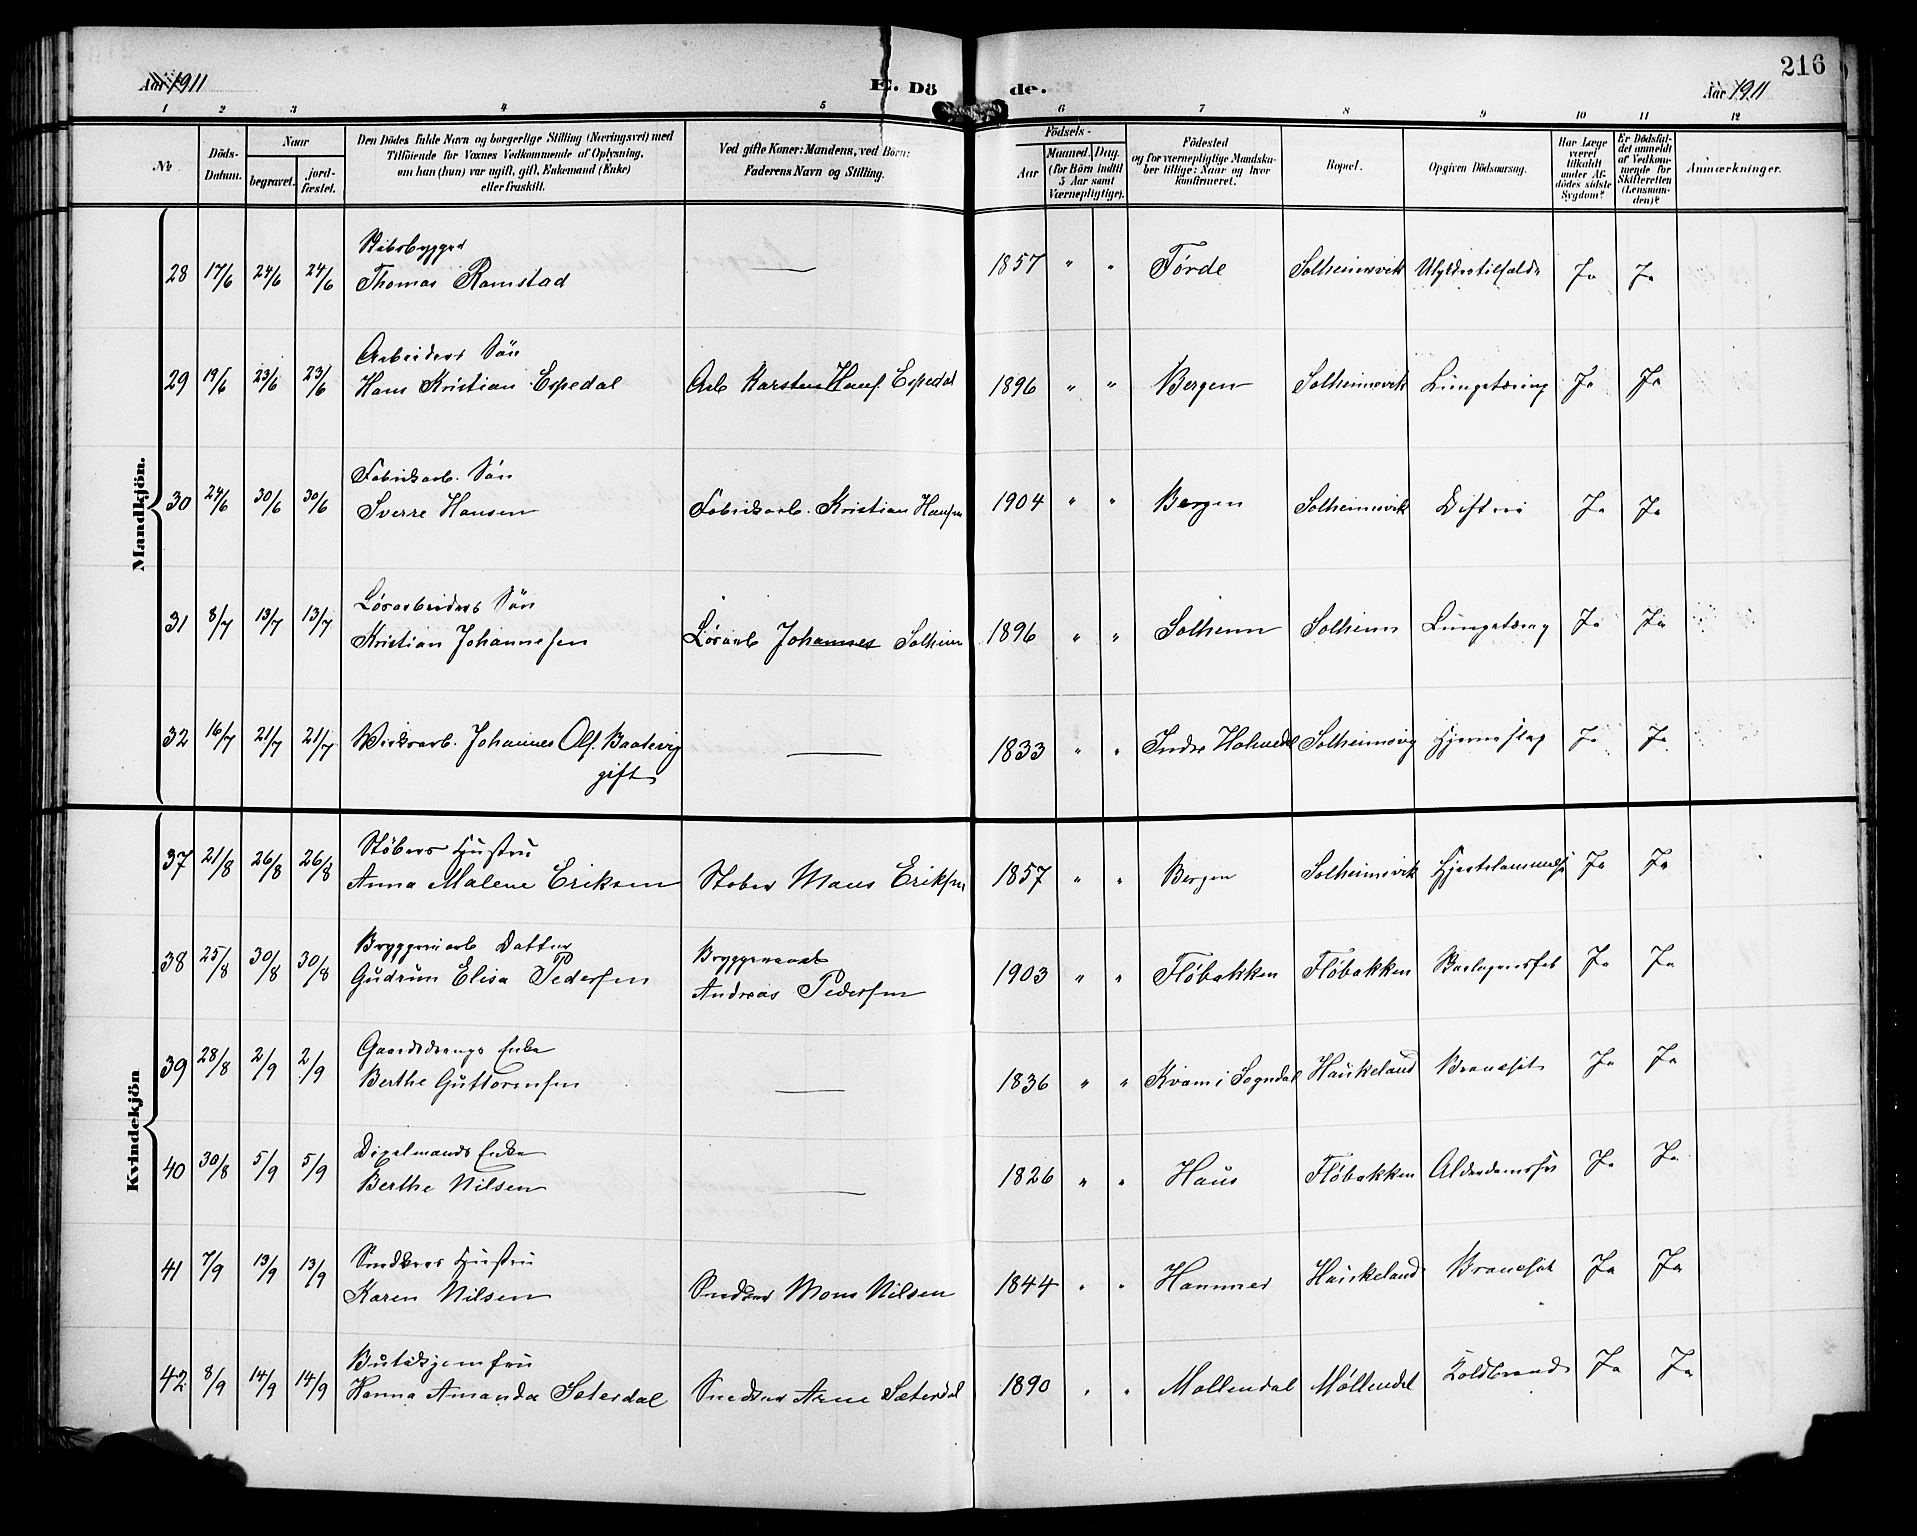 Aar 1911
E. Dö de.
216
Aar 1911
1 2 3 4 5 6 7 8 9 10 11 12
№
Döds-Datum.
Naar
begravet.
jordfæstet.
Den Dödes fulde Navn og borgerlige Stilling (Næringsvei) med
Tilföiende for Voxnes Vedkommende af Oplysning,
om han (hun) var ugift, gift, Enkemand (Enke)
eller fraskilt.
Ved gifte Koner: Mandens, ved Börn:
Faderens Navn og Stilling.
Födsels-
Aar
Maaned. Dag.
(for Börn indtil
5 Aar samt
Værnepligtige).
Födested
og for værnepligtige Mandskaber tillige: Naar og hvor
konfirmeret.
Bopæl.
Opgiven Dödsaarsag.
Har Læge
været
tilkaldt
under Afdödes sidste
Sygdom?
Er Dödsfaldet anmeldt
af Vedkommende for
Skifteretten
(Lensmanden)?
Anmærkninger.
Mandkjön.
Skibsbygger
28 17/6 24/6 24/6 Thomas Ramstad — 1857 " " Förde Solheimsvik Ulykkestilfælde Ja Ja
Arbeiders Sön
29 19/6 23/6 23/6 Hans Kristian Espedal Arb Karsten Hans Espedal 1896 " " Bergen Solheimsvik Lungetæring Ja Ja
Fabrikarb. Sön
30 24/6 30/6 30/6 Sverre Hansen Fabrikarb. Kristian Hansen 1904 " " Bergen Solheimsvik Difteri Ja Ja
Løsarbeiders Sön
31 8/7 13/7 13/7 Kristian Johannesen Løsarb Johannes Solheim 1896 " " Solheim Solheim Lungetæring Ja Ja
32 16/7 21/7 21/7 Johannes Ols. Baatevig — 1833 " " Indre Holmedal Solheimsvig Hjerneslag Ja Ja
gift
Kvindekjön
Støbers Hustru
37 21/8 26/8 26/8 Anna Malene Eriksen Støber Mons Eriksen 1857 " " Bergen Solheimsvik Hjertelammelse Ja Ja
Bryggeriarb Datter Bryggeriarb
38 25/8 30/8 30/8 Gudrun Elisa Pedersen Andreas Pedersen 1903 " " Fløbakken Fløbakken Ja Ja
Gaardsdrengs Enke
39 28/8 2/9 2/9 Berthe Guttormsen — 1836 " " Kvam i Sogndal Haukeland Ja Ja
Enke
40 30/8 5/9 5/9 Berthe Nilsen — 1826 " " Haus Fløbakken Ja Ja
Snedkers Hustru
41 7/9 13/9 13/9 Karen Nilsen Snedker Mons Nilsen 1844 " " Hammer Haukeland Ja Ja
Butikjomfru
42 8/9 14/9 14/9 Hanna Amanda Sæterdal Snedker Arne Sæterdal 1890 " " Møllendal Møllendal Koldbrand Ja Ja